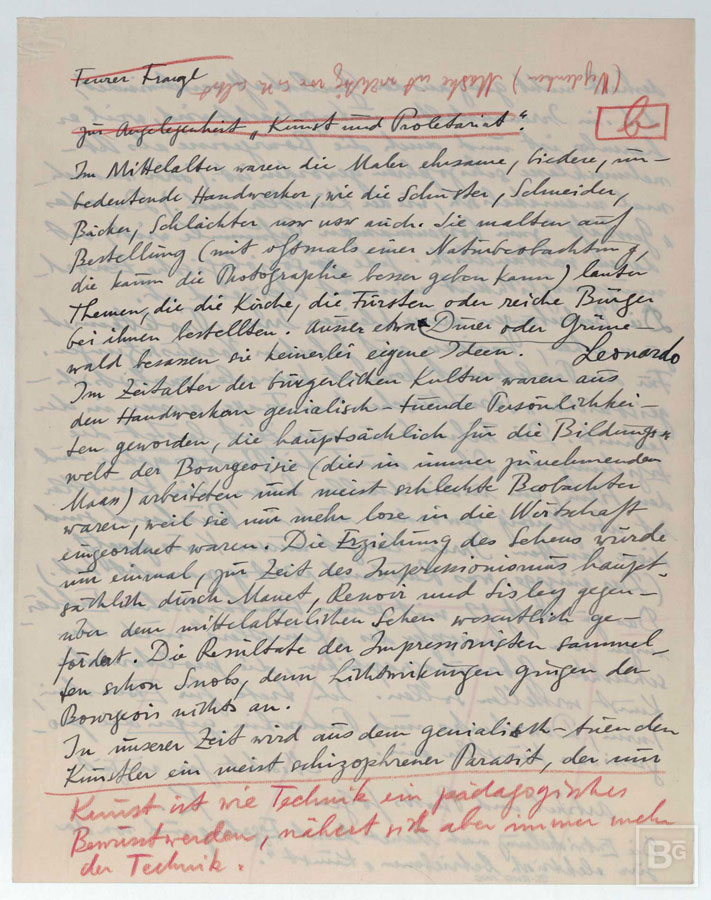 Feurer Frangl
(Wegdenken) Maske ist wichtig wie ich selbst
zur Angelegenheit „Kunst und Proletariat".
6.
Im Mittelalter waren die Maler ehrsame, biedere, un-
bedeutende Handwerker, wie die Schuster, Schneider,
Bäcker, Schlächter usw usw auch. Sie malten auf
Bestellung (mit oftmals einer Naturbeobachtung,
die kaum die Photographie besser geben kann) lauter
Themen, die die Kirche, die Fürsten oder reiche Bürger
bei ihnen bestellten. Ausser etwa Dürer oder Grüne-
wald besassen sie keinerlei eigene Ideen. Leonardo
Im Zeitalter der bürgerlichen Kultur waren aus
den Handwerkern genialisch-tuende Persönlichkei-
ten geworden, die hauptsächlich für die Bildungs-
welt der Bourgeoisie (dies in immer zunehmenden
Maas) arbeiteten und meist schlechte Beobachter
waren, weil sie nur mehr lose in die Wirtschaft
eingeordnet waren. Die Erziehung des Sehens wurde
nur einmal, zur Zeit des Impressionismus haupt-
sächlich durch Manet, Renoir und Sisley gegen-
über dem mittelalterlichen Sehen wesentlich ge-
fördert. Die Resultate der Impressionisten sammel-
ten schon Snobs, denn Lichtwirkungen gingen den
Bourgeois nichts an.
In unserer Zeit wird aus dem genialisch-tuenden
Künstler ein meist schizophrener Parasit, der nur
Kunst ist wie Technik ein pädagogisches
Bewusstwerden, nähert sich aber immer mehr
der Technik.
BG